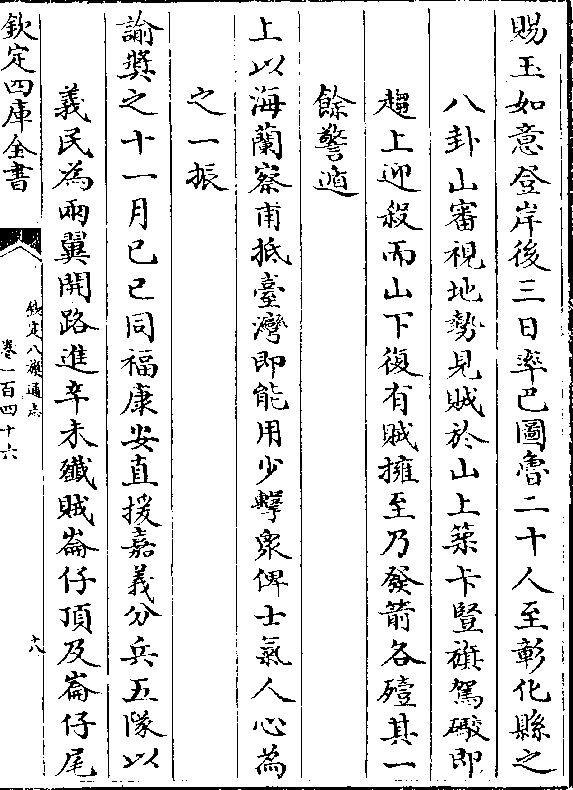 賜玉如意登岸後三日率巴圖魯二十人至彰化縣之
八卦山審視地勢見賊於山上築卡豎旗駕礮即
趨上迎殺而山下復有賊擁至乃發箭各殪其一
餘警遁
上以海蘭察甫抵臺灣即能用少擊衆俾士氣人心為
之一振
諭奬之十一月己巳同福康安直援嘉義分兵五隊以
義民為兩翼開路進辛未殲賊崙仔頂及崙仔尾
欽定四庫全書
欽定八旗通志
卷一百四十六
六